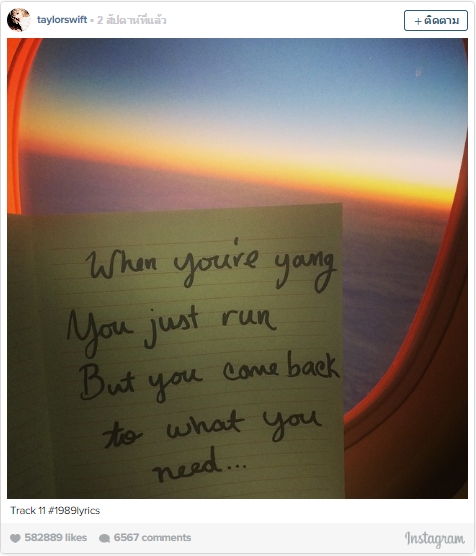 taylorswift • 2 สัปดาห์ที่แล้ว
+ ติดตาม
When you're yang
You just run
But you come back
to what you
need...
Track 11 #1989lyrics
582889 likes 6567 comments
Instagram